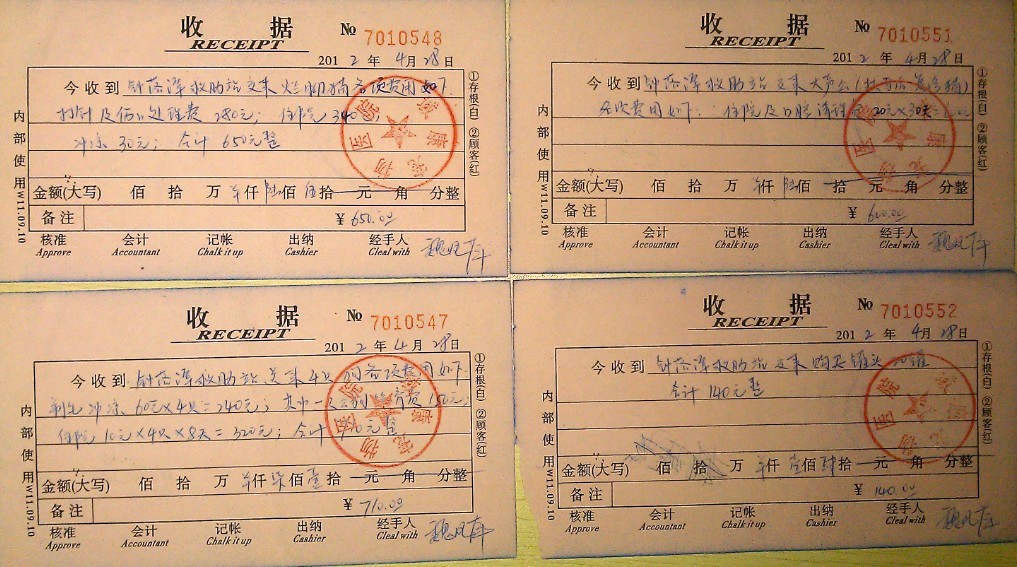 收 据
RECEIPT
№ 7010548
2012 年 4 月 28 日
今收到 钟落潭救助站交来 烂脚猫各项费用如下:
打针及伤口处理费 280元; 住院 340
冲凉 30元; 合计 650元整
金额(大写) 佰 拾 万 仟 陆佰 伍拾 元 角 分整
备注 ¥ 650.00
核准 会计 记帐 出纳 经手人
Approve Accountant Chalk it up Cashier Cleal with
内部使用W11.09.10
①存根(白) ②顾客(红)
收 据
RECEIPT
№ 7010551
2012 年 4 月 28 日
今收到 钟落潭救助站交来 大声公
各项费用如下: 住院及口腔清理 20元×30天=600
金额(大写) 佰 拾 万 仟 陆佰 拾 元 角 分整
备注 ¥ 600.00
核准 会计 记帐 出纳 经手人
Approve Accountant Chalk it up Cashier Cleal with
内部使用W11.09.10
①存根(白) ②顾客(红)
收 据
RECEIPT
№ 7010547
2012 年 4 月 28 日
今收到 钟落潭救助站 送来 4只 各项费用如下:
冲凉 60元×4只=240元; 其中一 150元;
住院 10元×4只×8天=320元; 合计 710元整
金额(大写) 佰 拾 万 仟 柒佰 壹拾 元 角 分整
备注 ¥ 710.00
核准 会计 记帐 出纳 经手人
Approve Accountant Chalk it up Cashier Cleal with
内部使用W11.09.10
①存根(白) ②顾客(红)
收 据
RECEIPT
№ 7010552
2012 年 4 月 28 日
今收到 钟落潭救助站交来 购买罐头 20罐
合计 140元整
金额(大写) 佰 拾 万 仟 壹佰 肆拾 元 角 分整
备注 ¥ 140.00
核准 会计 记帐 出纳 经手人
Approve Accountant Chalk it up Cashier Cleal with
内部使用W11.09.10
①存根(白) ②顾客(红)